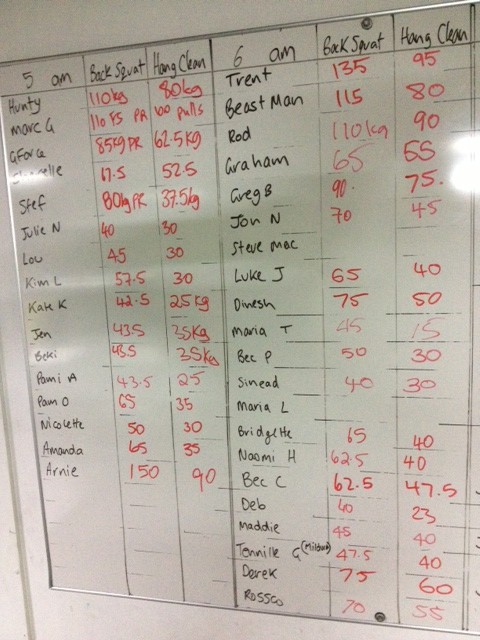 5 am Back Squat Hang Clean
Hunty 110kg 80kg
Marc G 110 FS PR 100 pulls
GForce 85kg PR 62.5kg
52.5
Stef 80kg PR 37.5kg
Julie N 40 30
Lou 45 30
Kim L 57.5 30
Kate K 42.5 25kg
Jen 43.5 35kg
Beki 35kg
Pami A 43.5 25
Pam O 65 35
Nicolette 50 30
Amanda 65 35
Arnie 150 90
6 am Back Squat Hang Clean
Trent 135 95
Beast Man 115 80
Rod 110kg 90
Graham 65 55
Greg B 90. 75.
Jon N 70 45
Steve Mac
Luke J 65 40
Dinesh 75 50
Maria T 45 15
Bec P 50 30
Sinead 40 30
Maria L
Bridgette 65 40
Naomi H 62.5 40
Bec C 62.5 47.5
Deb 40 23
Maddie 45 40
Tennille G 47.5 40
Derek 75 60
Rossco 70 55